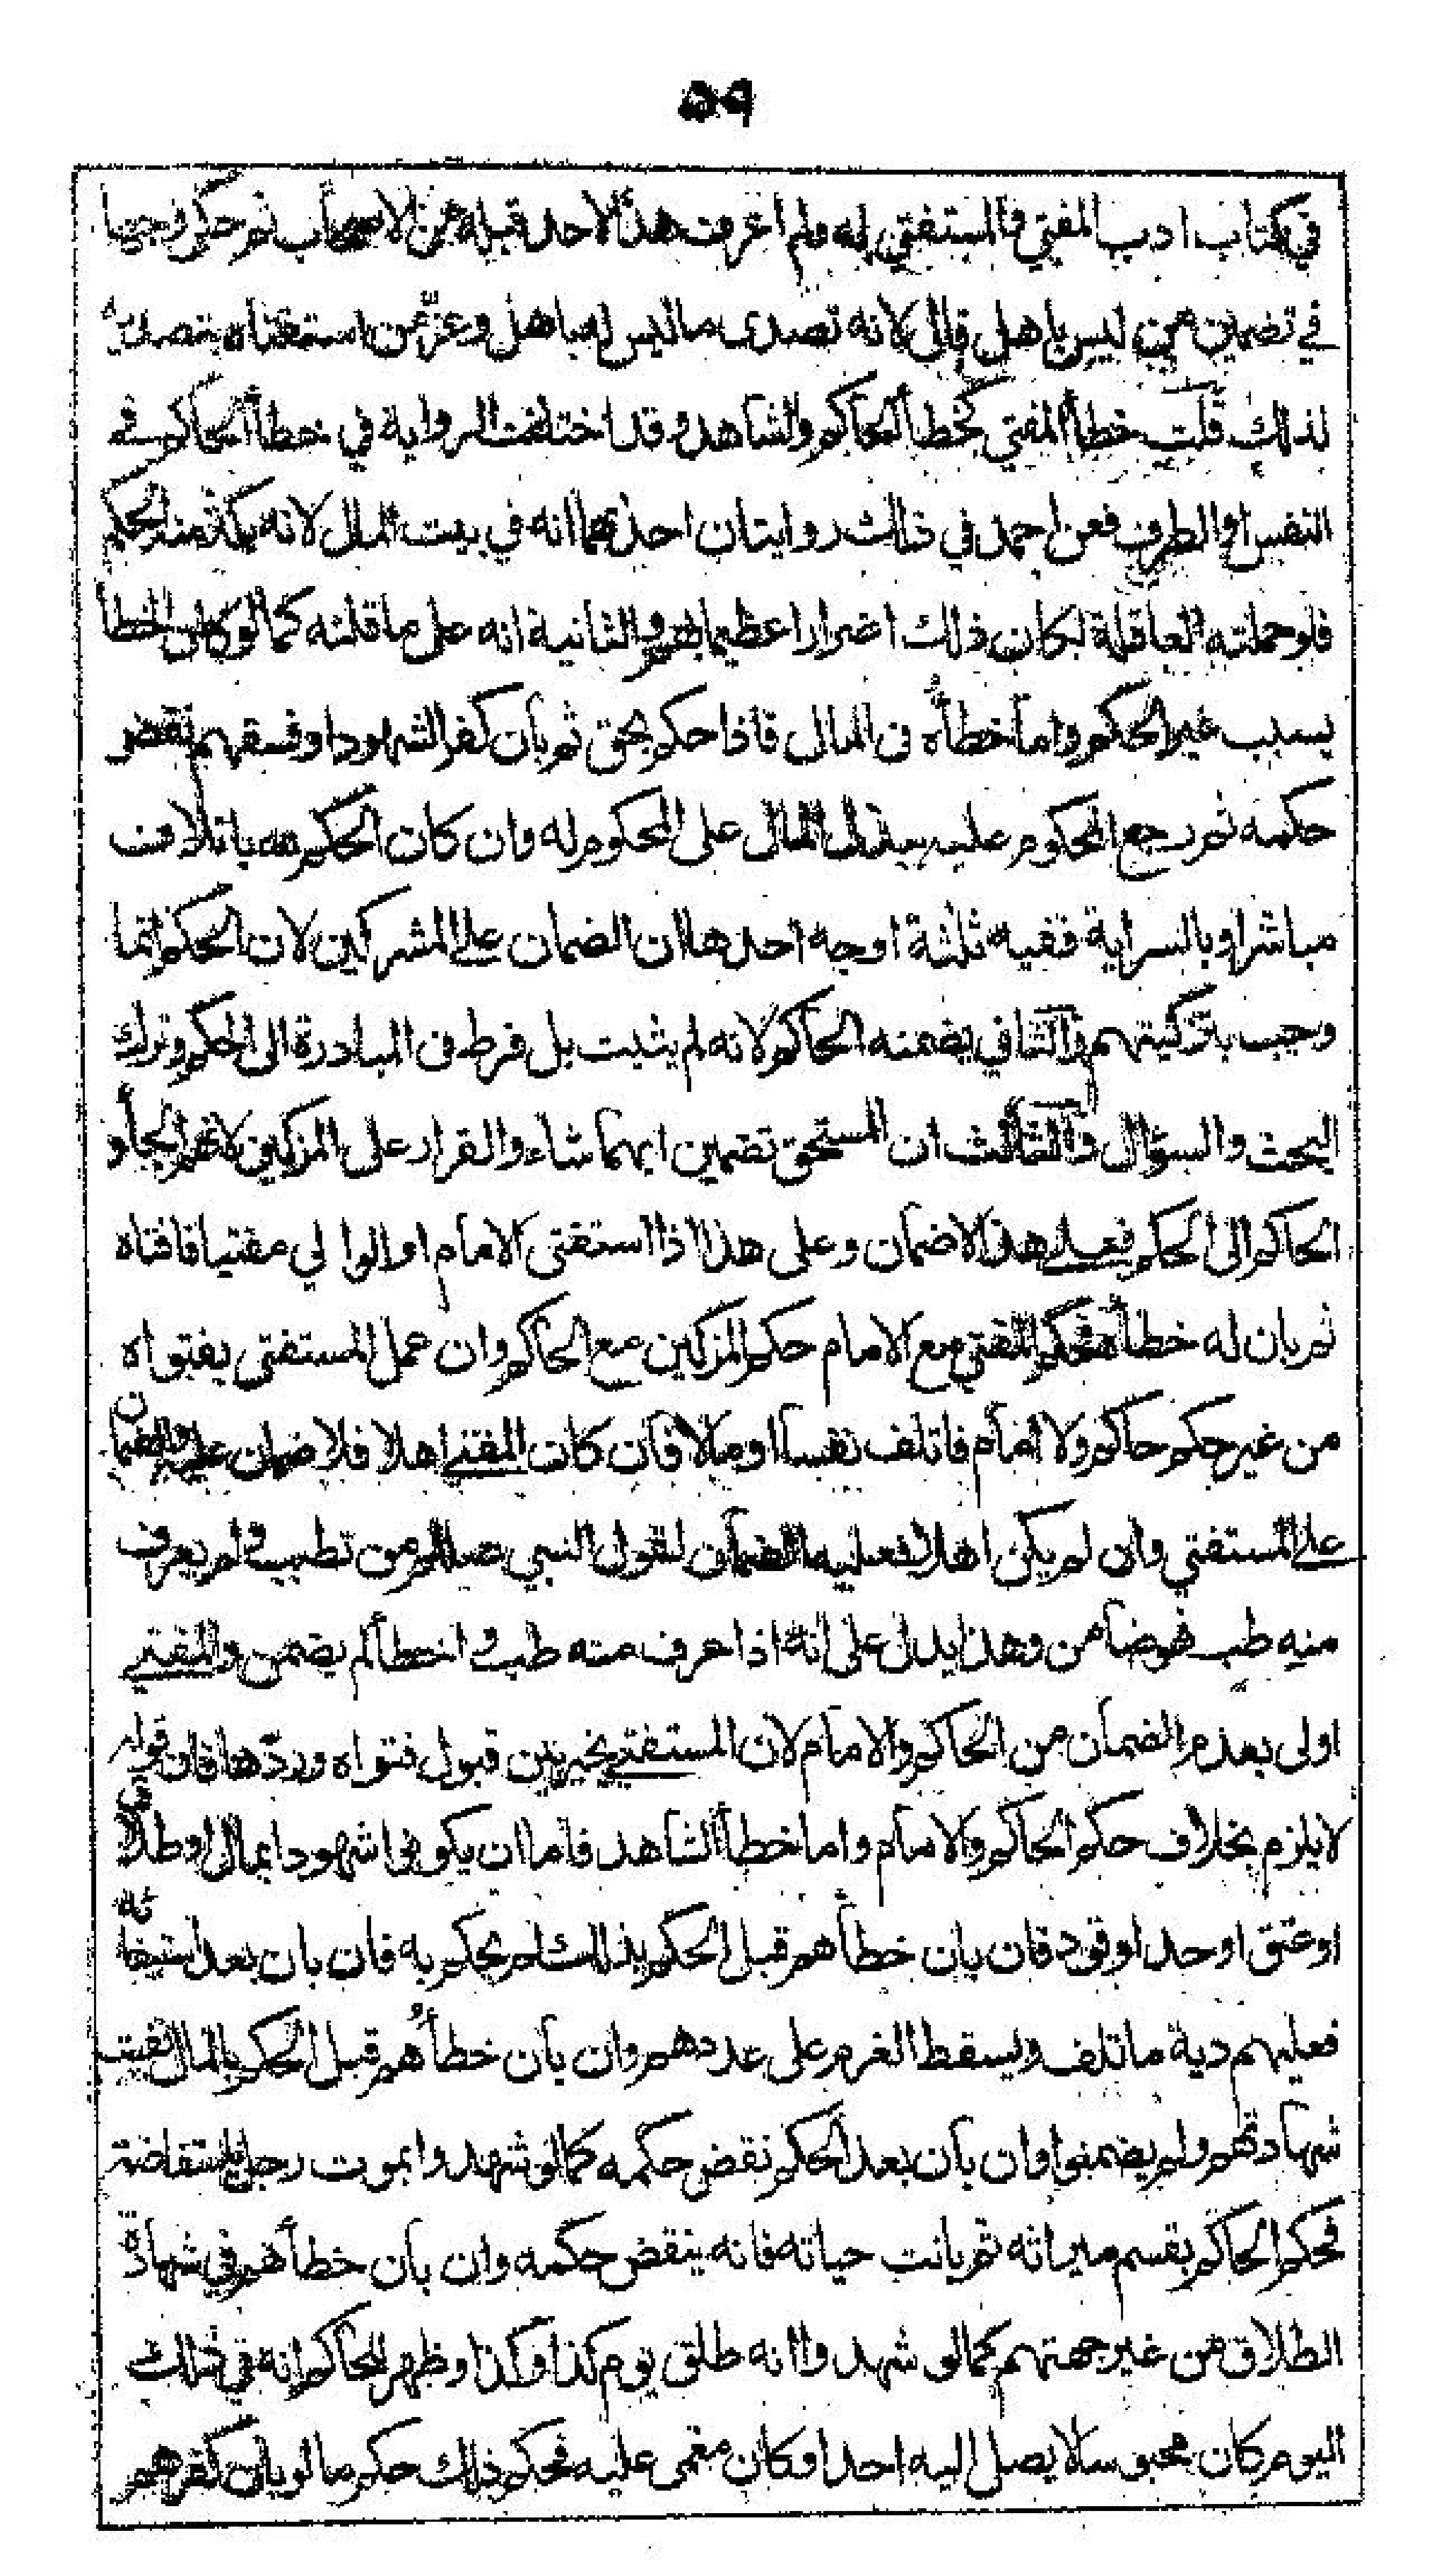 ٥٩
في كتاب ادب المفتي والمستفتي له ولم اعرف هذا لاحد قبله من الاصحاب ثم حكى وجها
في تضمين من ليس باهل قال لانه تصدى ما ليس له باهل وغرّ من استفتاه بتصديه
لذلك قلت خطأ المفتي كخطأ الحاكم والشاهد وقد اختلفت الرواية في خطأ الحاكم في
النفس او الطرف فعن احمد في ذلك روايتان احداهما انه في بيت المال لانه يكثر منه الحكم
فلو حملته العاقلة لكان ذلك اضرارا عظيما بهم والثانية انه على عاقلته كما لو كان الخطأ
بسبب غير الحكم واما خطأه في المال فاذا حكم بحق ثم بان كفر الشهود او فسقهم نقض
حكمه ثم رجع المحكوم عليه ببدل المال على المحكوم له وان كان الحكم لله باتلاف
مباشر او بالسراية ففيه ثلثة اوجه احدها ان الضمان على المزكين لان الحكم انما
وجب بتزكيتهم والثاني يضمنه الحاكم لانه لم يثبت بل فرط في المبادرة الى الحكم وترك
البحث والسؤال والثالث ان المستحق تضمين ايهما شاء والقرار على المزكين لانهم الجأوا
الحاكم الى الحكم فعلى هذا لا ضمان وعلى هذا اذا استفتى الامام او الوالي مفتيا فافتاه
ثم بان له خطأه فحكم المفتي مع الامام حكم المزكين مع الحاكم وان عمل المستفتي بفتواه
من غير حكم حاكم ولا امام فاتلف نفسا او مالا فان كان المفتي اهلا فلا ضمان عليه والضمان
على المستفتي وان لم يكن اهلا فعليه الضمان لقول النبي صلعم من تطبب ولم يعرف
منه طب فهو ضامن وهذا يدل على انه اذا عرف منه طب و اخطأ لم يضمن والمفتي
اولى بعدم الضمان من الحاكم والامام لان المستفتي يخير بين قبول فتواه وردّها فان قوله
لا يلزم بخلاف حكم الحاكم والامام واما خطأ الشاهد فاما ان يكونوا شهودا بمال او طلاق
او عتق او حد او قود فان بان خطأهم قبل الحكم بذلك لم يحكم به فان بان بعد استيفائه
فعليهم دية ما تلف ويسقط الغرم على عددهم وان بان خطأهم قبل الحكم بالمال لغيت
شهادتهم ولم يضمنوا وان بان بعد الحكم نقض حكمه كما لو شهدوا بموت رجل باستفاضة
فحكم الحاكم بقسم ميراثه ثم بانت حياته فانه ينقض حكمه وان بان خطأهم في شهادة
الطلاق من غير جهتهم كما لو شهدوا انه طلق يوم كذا وكذا وظهر للحاكم انه في ذلك
اليوم كان محبوسا لا يصل اليه احد او كان مغمى عليه فحكم ذلك حكم ما لو بان كفرهم